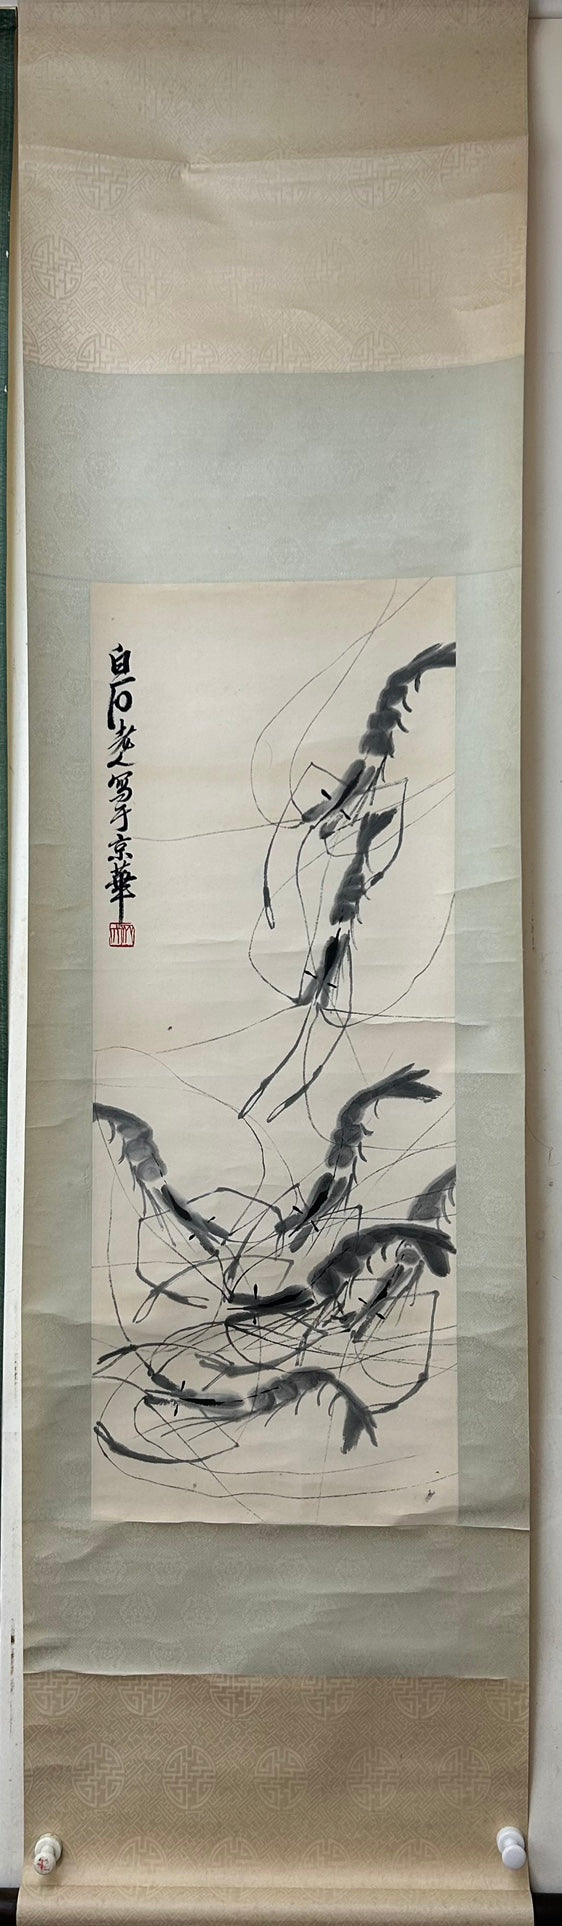 白石老人写于京華